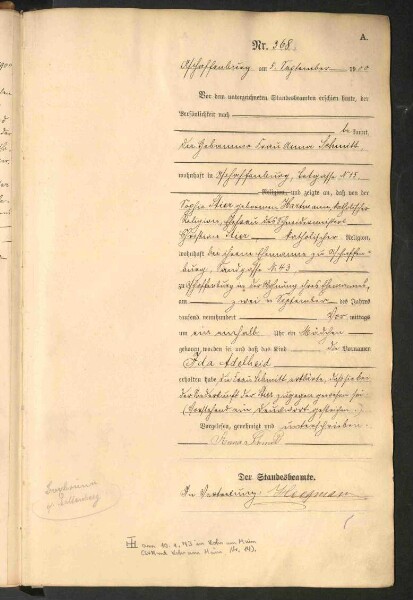 A.
Nr. 368.
Aschaffenburg am 5. September 1900
Vor dem unterzeichneten Standesbeamten erschien heute, der
Persönlichkeit nach
be kannt,
die Hebamme Frau Anna Schmitt,
wohnhaft in Aschaffenburg,
Religion, und zeigte an, daß von der
Stier geborenen Hartmann, katholischer
Religion, Ehefrau des Schneidermeisters
Christian Stier katholischer Religion,
wohnhaft bei ihrem Ehemanne zu Aschaffen-
burg, Sandgasse N. 43
zu Aschaffenburg in der Wohnung ihres Ehemannes,
am zwei ten September des Jahres
tausend neunhundert Vor mittags
um ein einhalb Uhr ein Mädchen
geboren worden sei und daß das Kind die Vornamen
Ida Adelheid
erhalten habe. Die Frau Schmitt erklärte, daß sie bei
der Niederkunft der Stier zugegen gewesen sei.
(Vorstehend ein Druckwort gestrichen.)
Vorgelesen, genehmigt und unterschrieben
Anna Schmitt
Der Standesbeamte.
In Vertretung: